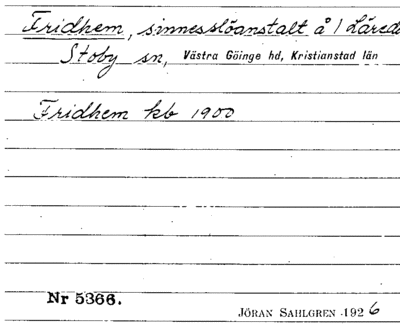 Fridhem, sinnesslöanstalt å 1
Stoby sn, Västra Göinge hd, Kristianstad län
Fridhem kb 1900
Nr 5366.
JÖRAN SAHLGREN 1926